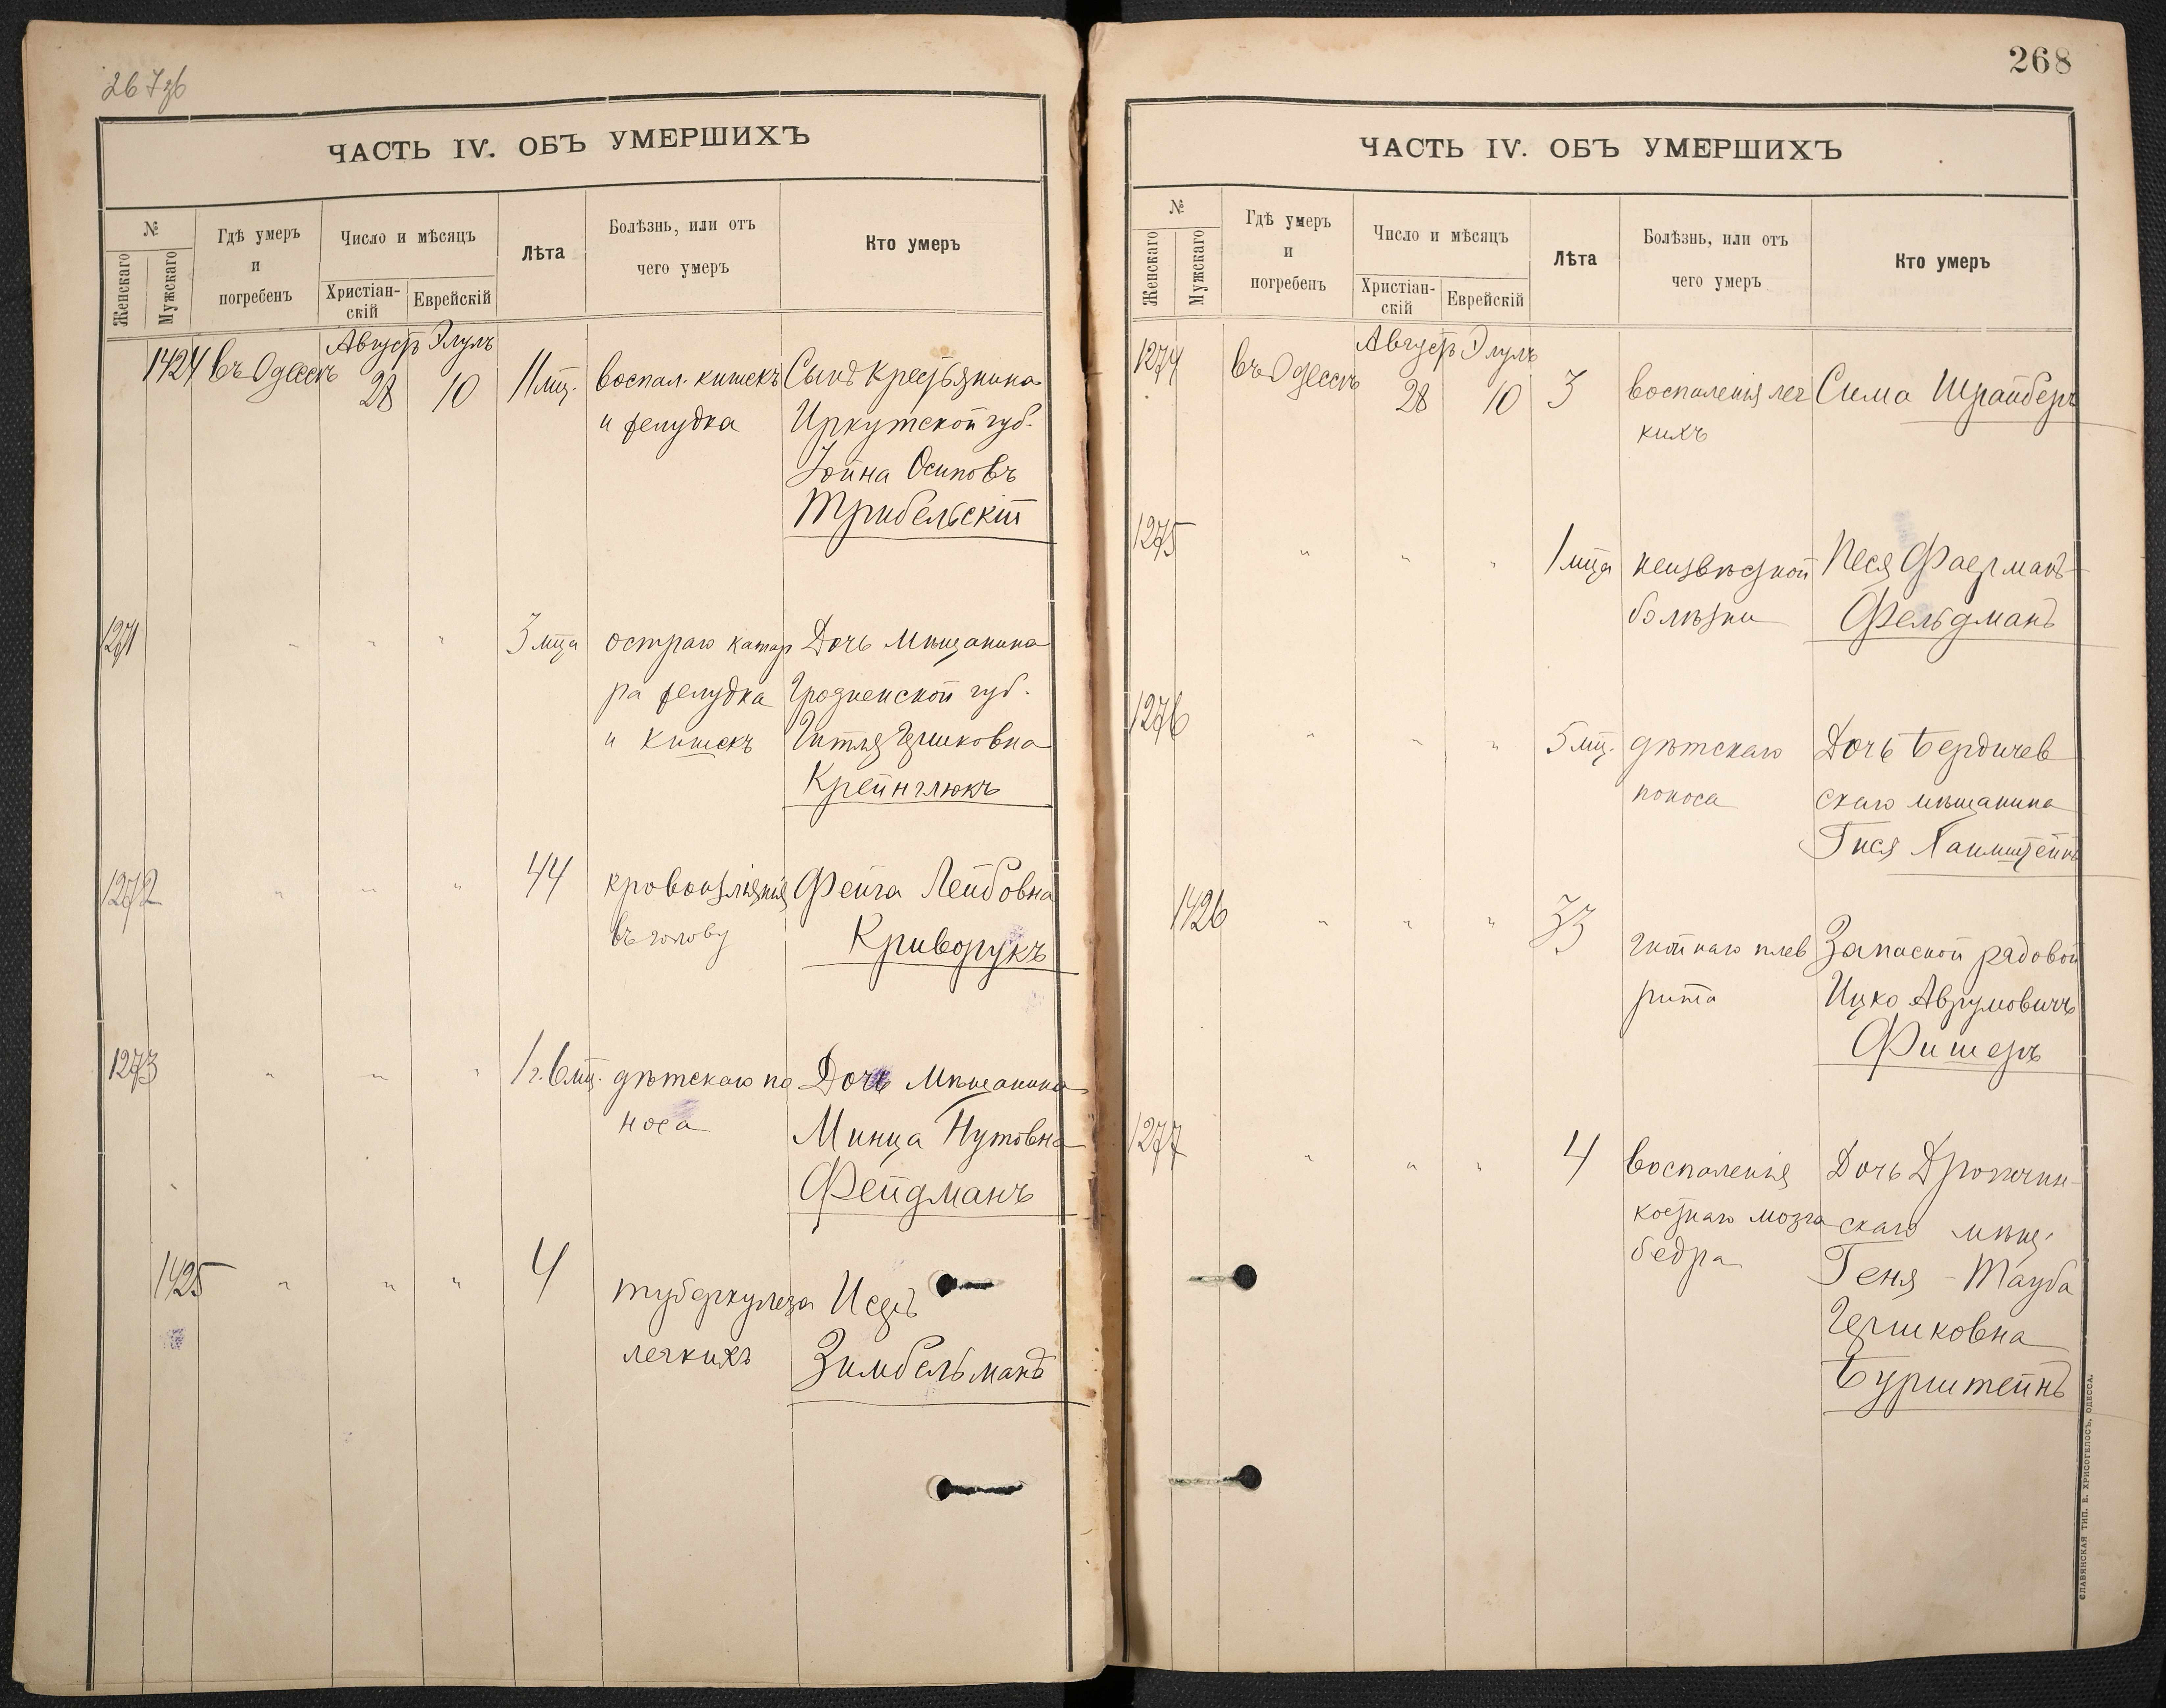 267 об
ЧАСТЬ IV. ОБЪ УМЕРШИХЪ
№
Женскаго
Мужскаго
Гдѣ умеръ
и
погребенъ
Число и мѣсяцъ
Христіан-
скій
Еврейскій
Лѣта
Болѣзнь, или отъ
чего умеръ
Кто умеръ
Августъ Элулъ
1424 въ Одессѣ 28 10 11 мц. воспал. кишекъ Сынъ крестьянина
и желудка Иркутской губ.
Іойна Осиповъ
Трибельскій
1271 " " " 3 мца остраго катар Дочь мѣщанина
ра желудка Гродненской губ.
и кишекъ Гитля Гершковна
Крейнглюкъ
1272 " " " 44 кровоизліянія Фейга Лейбовна
въ голову Криворукъ
1273 " " " 1 г. 6 мц. дѣтскаго по Дочь мѣщанина
носа Минца Нутовна
Фейдманъ
1425 " " " 4 туберкулеза Исеръ
легкихъ Зимбельманъ
268
ЧАСТЬ IV. ОБЪ УМЕРШИХЪ
№
Женскаго
Мужскаго
Гдѣ умеръ
и
погребенъ
Число и мѣсяцъ
Христіан-
скій
Еврейскій
Лѣта
Болѣзнь, или отъ
чего умеръ
Кто умеръ
Августъ Элулъ
1274 въ Одессѣ 28 10 3 воспаленія лег Сима Шрайберъ
кихъ
1275 " " " 1 мца неизвѣстной Песя Фаерманъ-
болѣзни Фельдманъ
1276 " " " 5 мц. дѣтскаго Дочь Бердичев
поноса скаго мѣщанина
Гися
1426 " " " 33 гнойнаго плев Запасной рядовой
рита Ицко Аврумовичъ
Фишеръ
1277 " " " 4 воспаленія Дочь
костнаго мозга скаго мѣщ.
бедра Геня-Тауба
Гершковна
Бурштейнъ
СЛАВЯНСКАЯ ТИП. Е. ХРИСОГЕЛОСЪ, ОДЕССА.